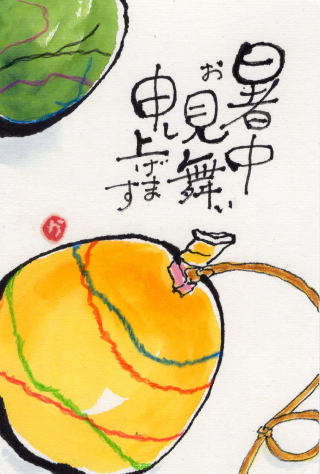 暑中
お見舞い
申し
上げます
か